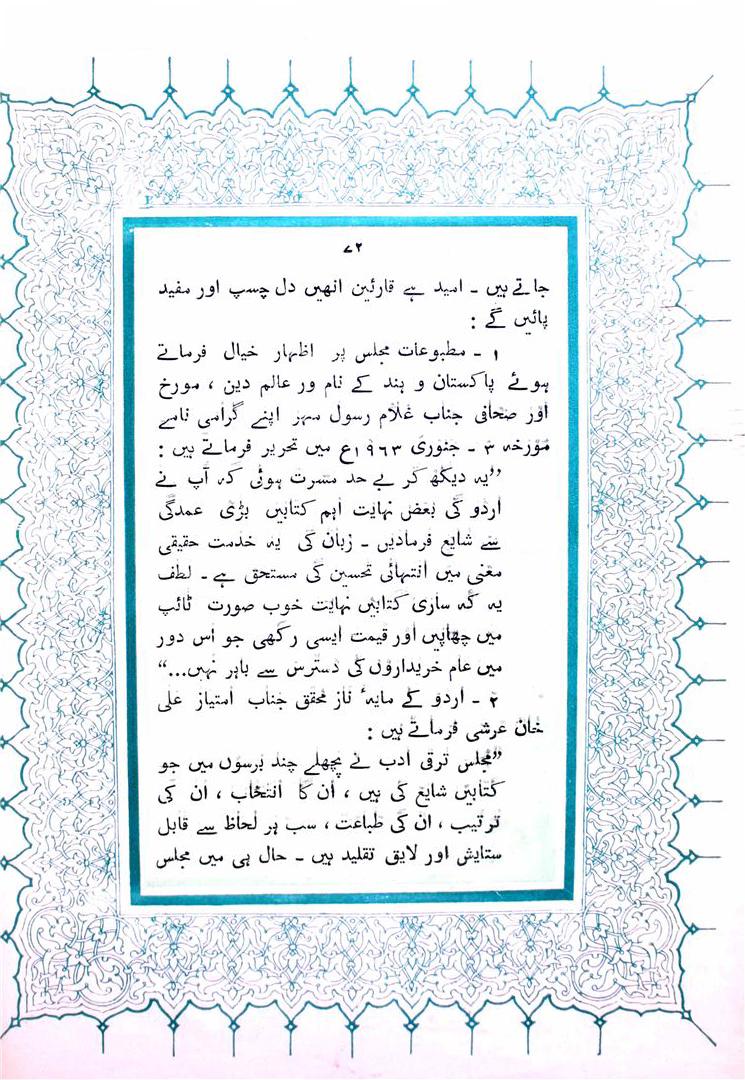 ۷۲
جاتے ہیں ۔ امید ہے قارئین انھیں دل چسپ اور مفید
پائیں گے :
۱ ۔ مطبوعات مجلس پر اظہار خیال فرماتے
ہوئے پاکستان و ہند کے نام ور عالم دین ، مورخ
اور صحافی جناب غلام رسول مہر اپنے گرامی نامے
مورخہ ۳ ۔ جنوری ۱۹۶۳ع میں تحریر فرماتے ہیں :
”یہ دیکھ کر بے حد مسرت ہوئی کہ آپ نے
اردو کی بعض نہایت اہم کتابیں بڑی عمدگی
سے شایع فرمادیں ۔ زبان کی یہ خدمت حقیقی
معنی میں انتہائی تحسین کی مستحق ہے ۔ لطف
یہ کہ ساری کتابیں نہایت خوب صورت ٹائپ
میں چھاپیں اور قیمت ایسی رکھی جو اس دور
میں عام خریداروں کی دسترس سے باہر نہیں...“
۲ ۔ اردو کے مایہٴ ناز محقق جناب امتیاز علی
خان عرشی فرماتے ہیں :
”مجلس ترقی ادب نے پچھلے چند برسوں میں جو
کتابیں شایع کی ہیں ، اُن کا انتخاب ، ان کی
ترتیب ، ان کی طباعت ، سب ہر لحاظ سے قابل
ستایش اور لایق تقلید ہیں ۔ حال ہی میں مجلس